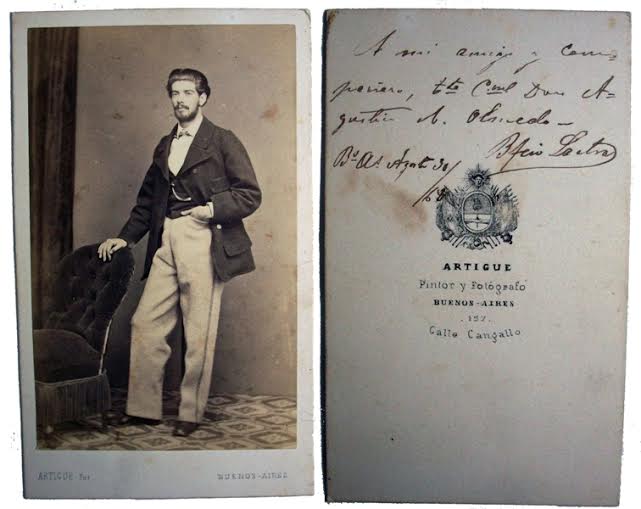 ARTIGUE Fot.
BUENOS-AIRES
A mi amigo y com-
pañero, tte C.nel Don A-
gustin A. Olmedo-
Bs As Agosto 30/
ARTIGUE
Pintor y Fotógrafo
BUENOS-AIRES
. 197.
Calle Cangallo